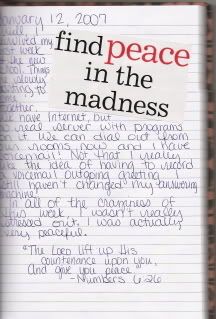 January 12, 2007
Well I
survived my
week
the new
Things
slowly
to
find peace
in the
madness
have Internet, but
real server with programs
on it. We can dial out from
our rooms now and I have
voicemail! Not that I really
like the idea of having to record
voicemail outgoing greeting. I
still haven't changed my answering
machine.
In all of the craziness of
this week, I wasn't really
stressed out. I was actually
very peaceful.
"The LORD lift up His
countenance upon you,
And give you peace."
-Numbers 6:26